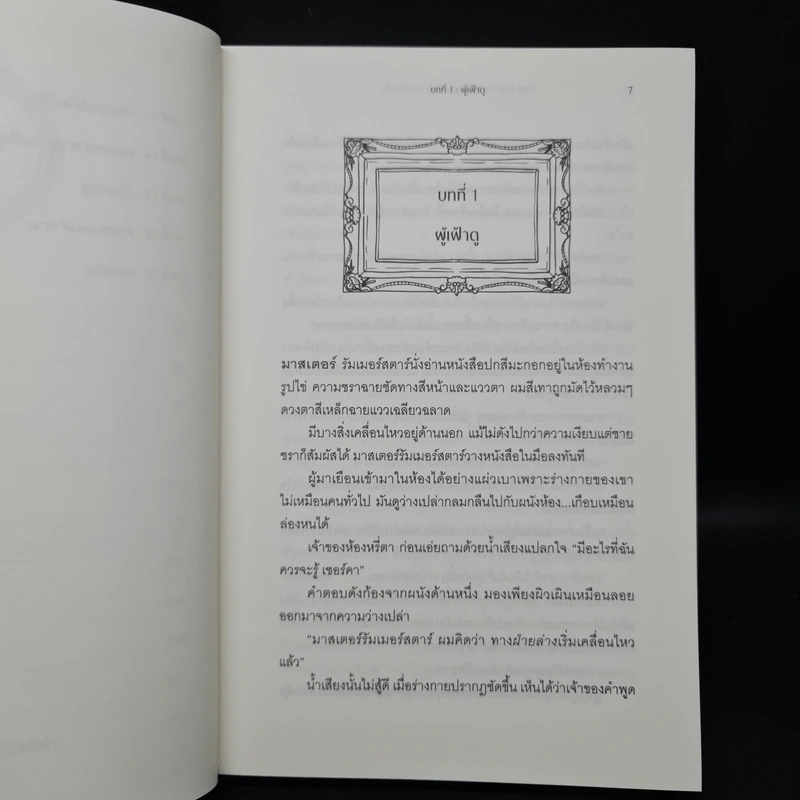 บทที่ 1 : ผู้เฝ้าดู 7
บทที่ 1
ผู้เฝ้าดู
มาสเตอร์ รัมเมอร์สตาร์นั่งอ่านหนังสือปกสีมะกอกอยู่ในห้องทำงาน
รูปไข่ ความชราฉายชัดทางสีหน้าและแววตา ผมสีเทาถูกมัดไว้หลวมๆ
ดวงตาสีเหล็กฉายแววเฉลียวฉลาด
มีบางสิ่งเคลื่อนไหวอยู่ด้านนอก แม้ไม่ดังไปกว่าความเงียบแต่ชาย
ชราก็สัมผัสได้ มาสเตอร์รัมเมอร์สตาร์วางหนังสือในมือลงทันที
ผู้มาเยือนเข้ามาในห้องได้อย่างแผ่วเบาเพราะร่างกายของเขา
ไม่เหมือนคนทั่วไป มันดูว่างเปล่ากลมกลืนไปกับผนังห้อง...เกือบเหมือน
ล่องหนได้
เจ้าของห้องหรี่ตา ก่อนเอ่ยถามด้วยน้ำเสียงแปลกใจ “มีอะไรที่ฉัน
ควรจะรู้ เชอร์คา”
คำตอบดังก้องจากผนังด้านหนึ่ง มองเพียงผิวเผินเหมือนลอย
ออกมาจากความว่างเปล่า
“มาสเตอร์รัมเมอร์สตาร์ ผมคิดว่า ทางฝ่ายล่างเริ่มเคลื่อนไหว
แล้ว”
น้ำเสียงนั้นไม่สู้ดี เมื่อร่างกายปรากฏชัดขึ้น เห็นได้ว่าเจ้าของคำพูด